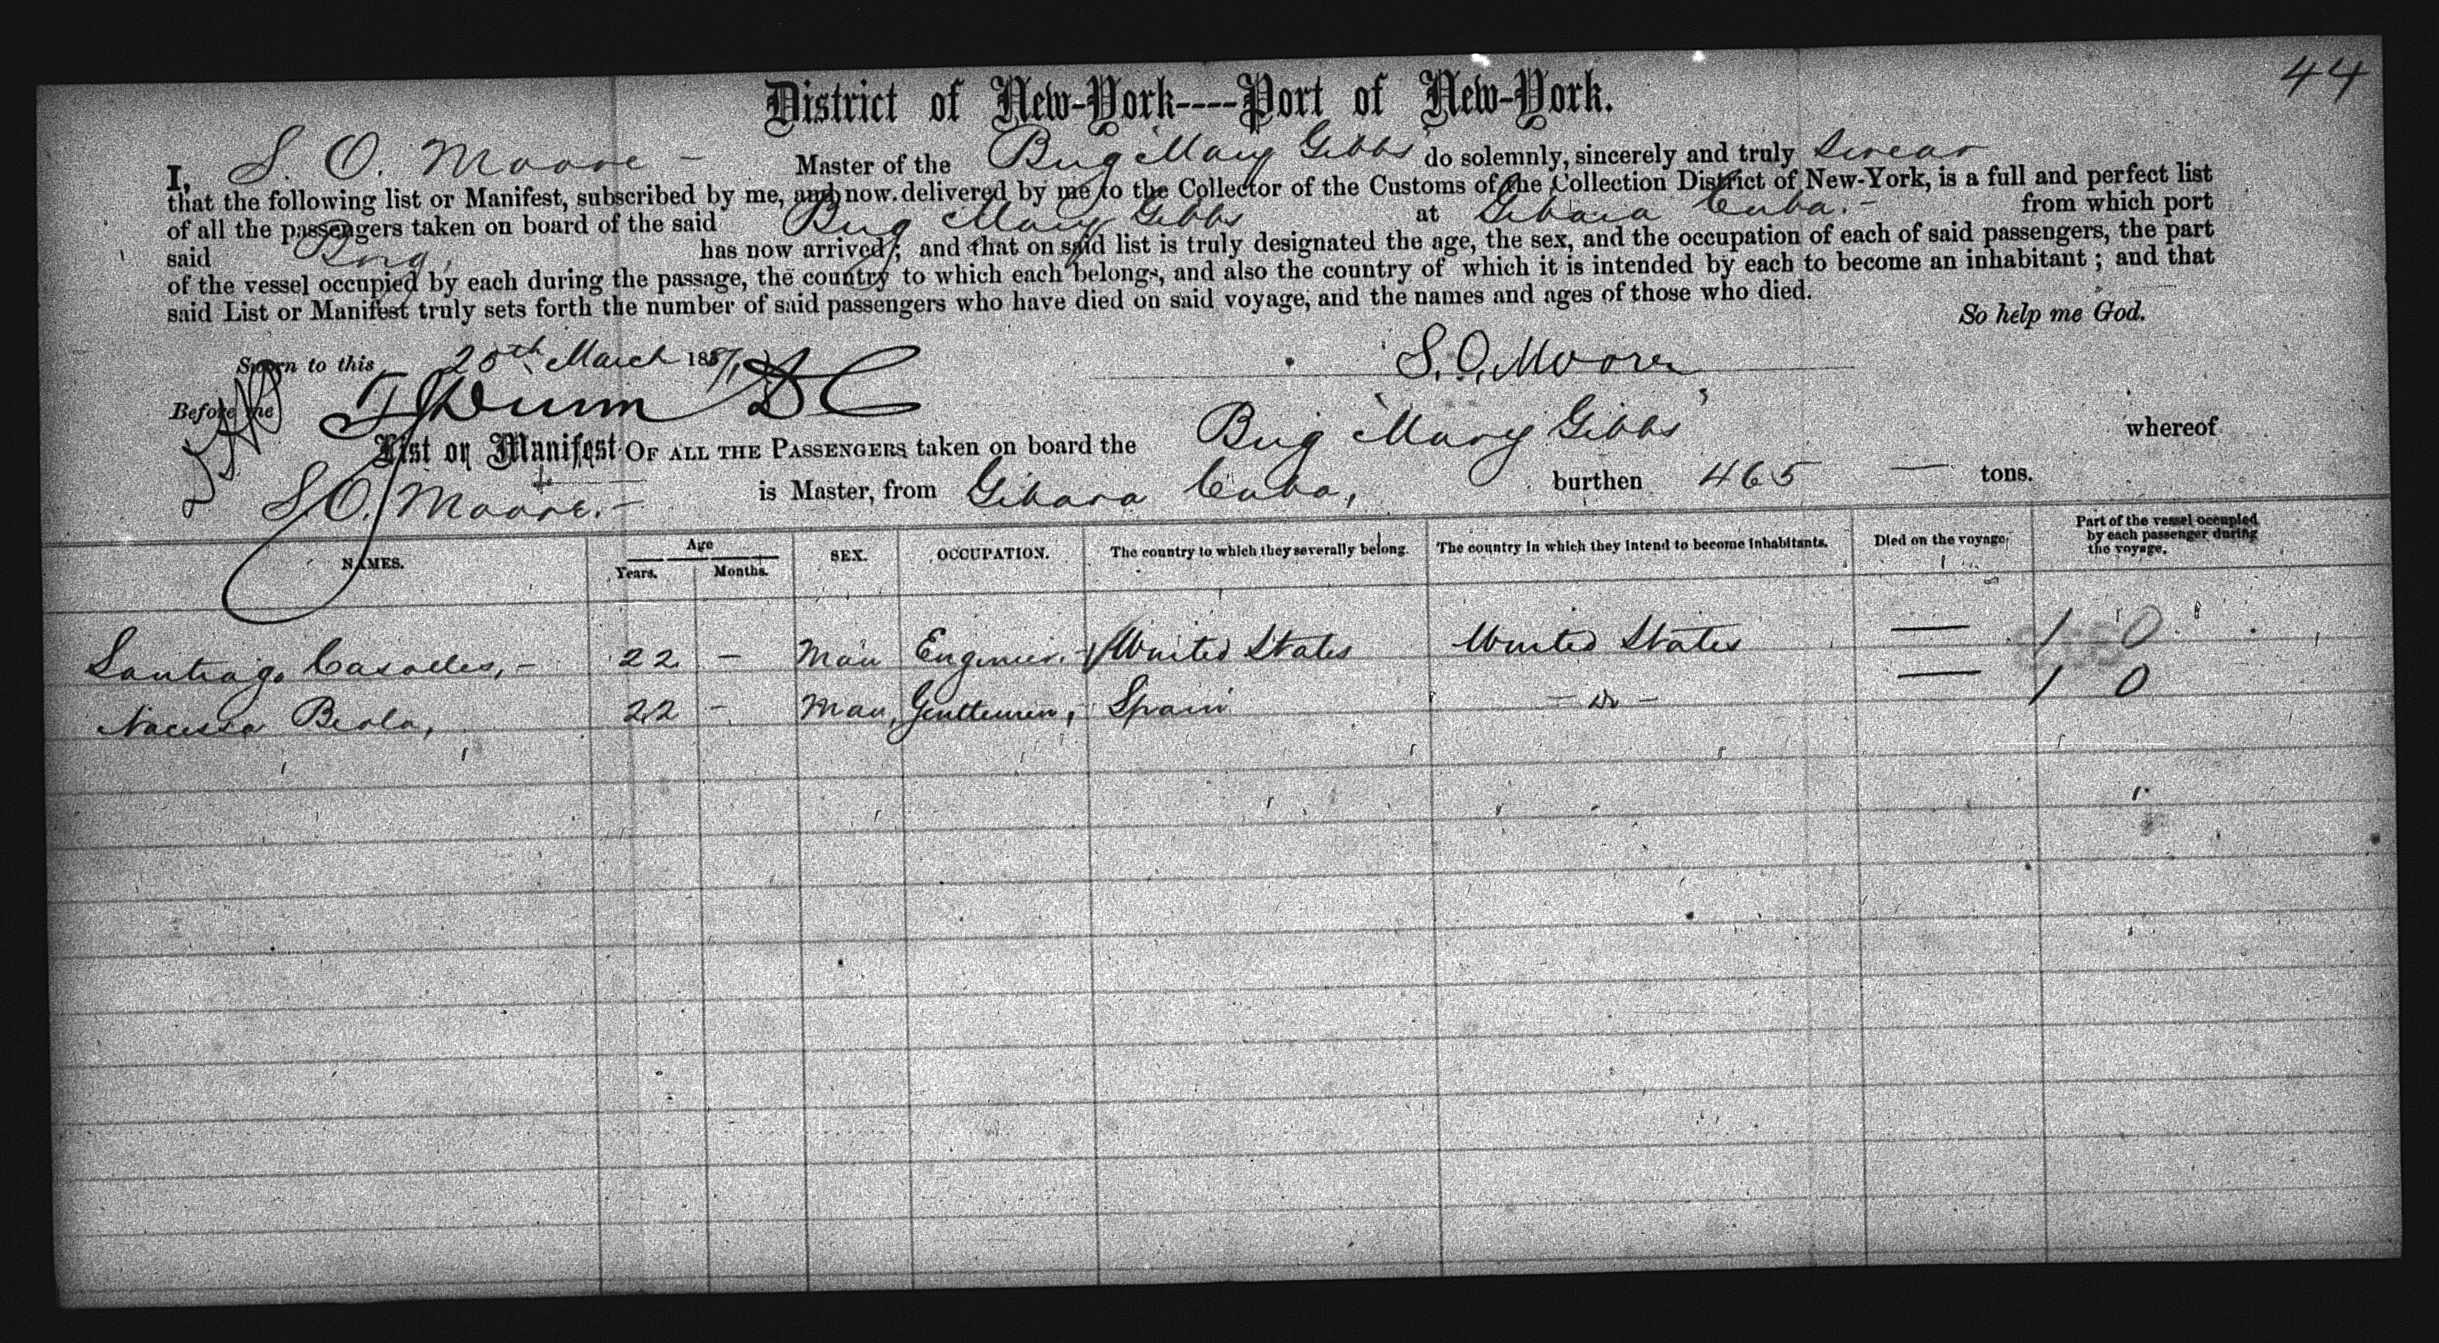 44
District of New-York----Port of New-York.
I, S. O. Moore - Master of the Brig "Mary Gibbs" do solemnly, sincerely and truly swear
that the following list or Manifest, subscribed by me, and now delivered by me to the Collector of the Customs of the Collection District of New-York, is a full and perfect list
of all the passengers taken on board of the said Brig Mary Gibbs at Gibara Cuba. - from which port
said Brig, has now arrived; and that on said list is truly designated the age, the sex, and the occupation of each of said passengers, the part
of the vessel occupied by each during the passage, the country to which each belongs, and also the country of which it is intended by each to become an inhabitant; and that
said List or Manifest truly sets forth the number of said passengers who have died on said voyage, and the names and ages of those who died.
So help me God.
Sworn to this 25th March 188/1 S. O. Moore
Before me Dunn DC
List or Manifest OF ALL THE PASSENGERS taken on board the Brig "Mary Gibbs" whereof
S. O. Moore. - is Master, from Gibara Cuba, burthen 465 — tons.
NAMES. Age Years. Months. SEX. OCCUPATION. The country to which they severally belong. The country in which they intend to become inhabitants. Died on the voyage. Part of the vessel occupied by each passenger during the voyage.
Santiago Casalles, - 22 - Man Engineer. United States United States — 1 0
Beola, 22 - Man, Gentlemen, Spain - Do - — 1 0